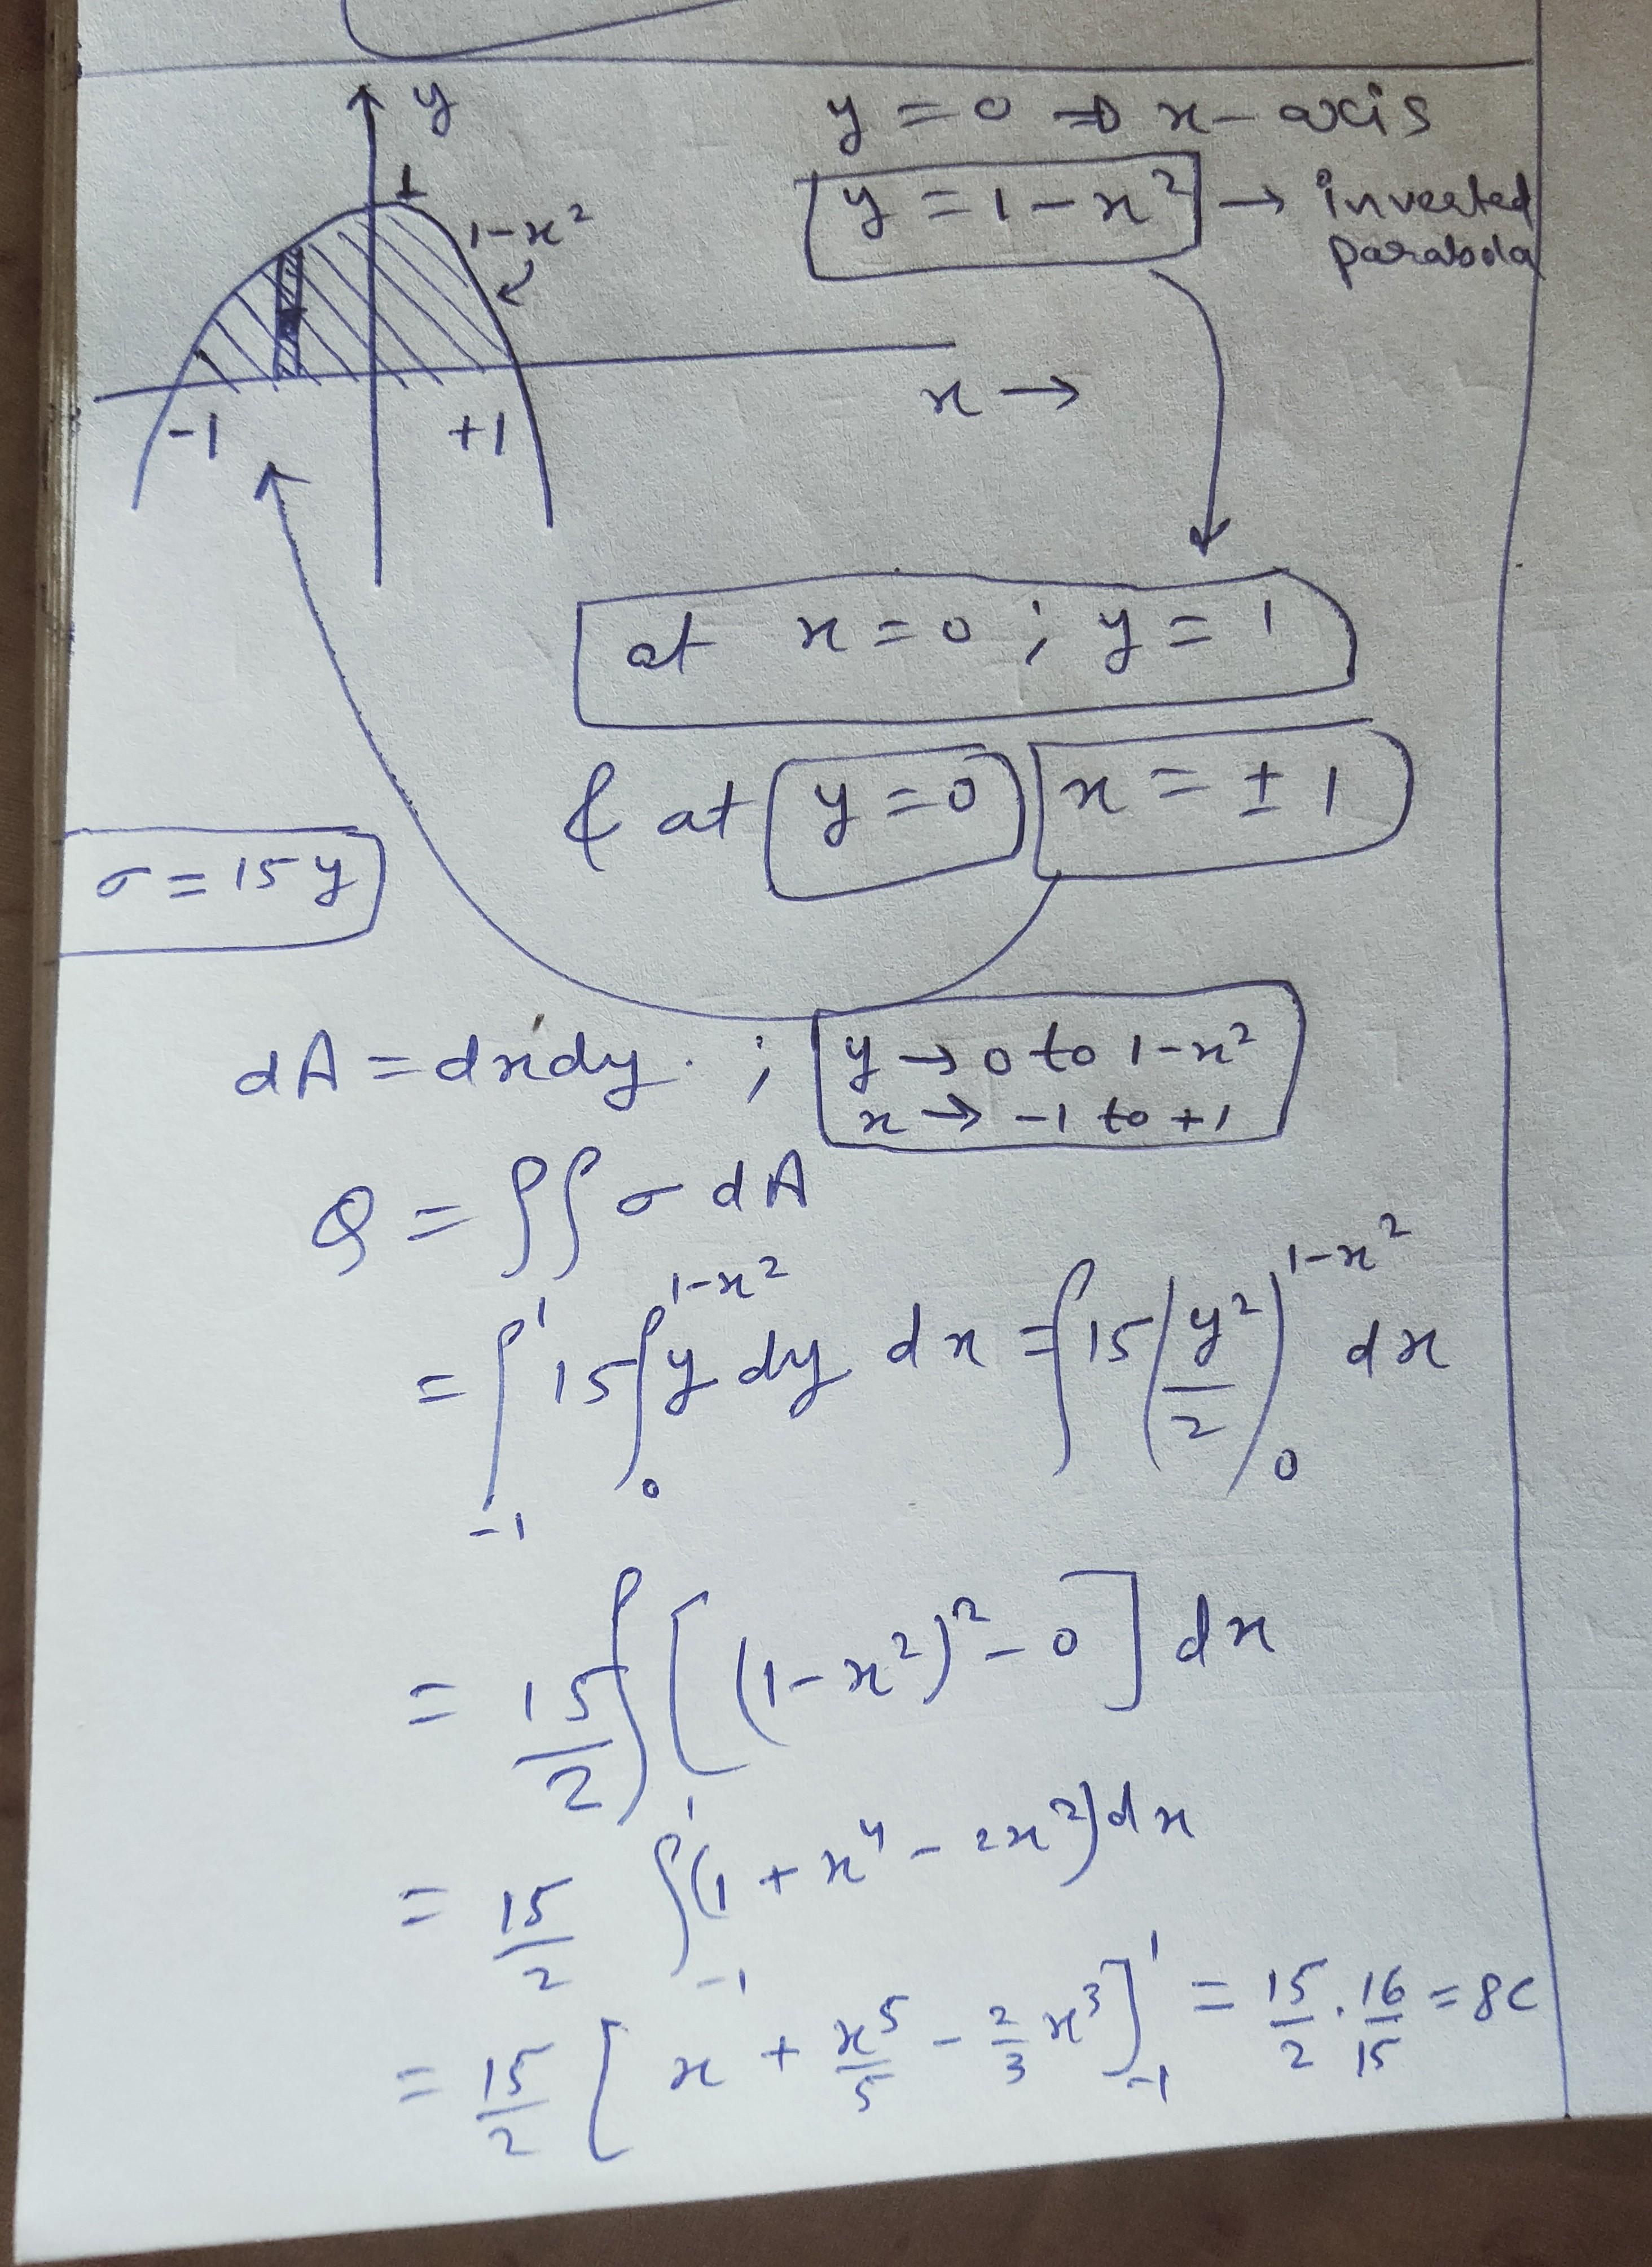 y
y = 0 ⇒ x-axis
1
1-x²
y = 1-x² → inverted
parabola
-1 +1
x →
at x = 0 ; y = 1
& at y = 0 x = ± 1
σ = 15y
dA = dxdy . ; y → 0 to 1-x²
x → -1 to +1
Q = ∫∫ σ dA
= ∫₋₁¹ 15 ∫₀^(1-x²) y dy dx = ∫ 15 (y²/2)₀^(1-x²) dx
= 15/2 ∫ [ (1-x²)² - 0 ] dx
= 15/2 ∫₋₁¹ (1 + x⁴ - 2x²) dx
= 15/2 [ x + x⁵/5 - 2/3 x³ ]₋₁¹ = 15/2 . 16/15 = 8C